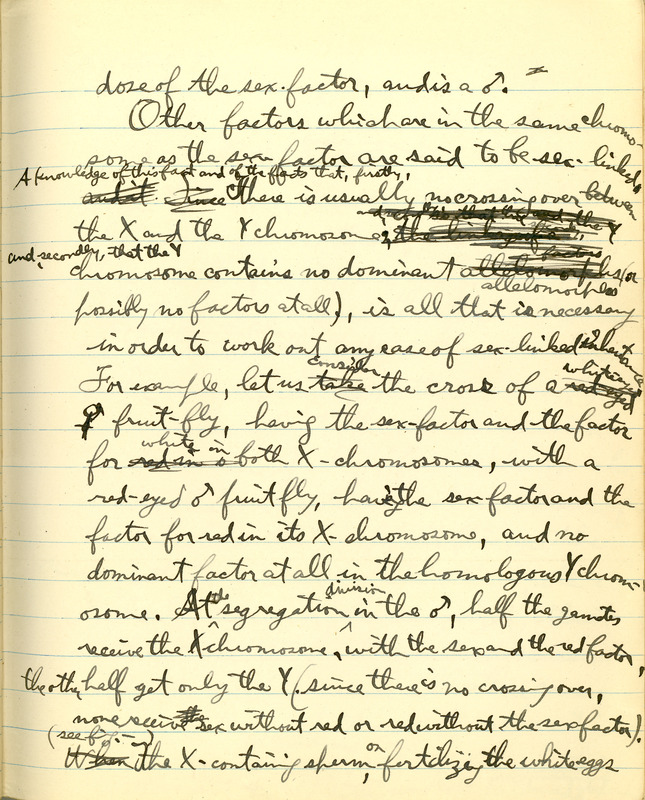 dose of the sex-factor, and is a ♂.
Other factors which are in the same chromo-
some as the sex factor are said to be sex-linked,
A knowledge of this fact and of the effects that, firstly,
and it Since there is usually no crossing over between
the X and the Y chromosome,
and, secondly, that the Y
chromosome contains no dominant allelomorphs (or
factors
allelomorphs
possibly no factors at all), is all that is necessary
in order to work out any case of sex-linked inheritance
consider white-eyed
For example, let us take the cross of a red eyed
♀ fruit-fly, having the sex-factor and the factor
white in
for red in both X-chromosomes, with a
red-eyed ♂ fruit fly, having the sex-factor and the
factor for red in its X-chromosome, and no
dominant factor at all in the homologous Y chrom-
the division
osome. At segregation in the ♂, half the gametes
receive the X chromosome, with the sex and the red factor,
the other half get only the Y (since there is no crossing over,
none receive the sex without red or red without the sex factor).
(see fig. —)
When the X-containing sperm, on fertilizing the white eggs